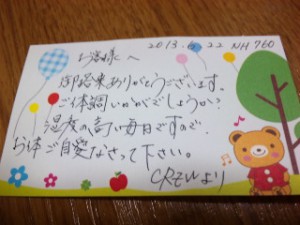 2013.6.22 NH760
お客様へ
御搭乗ありがとうございます。
ご体調いかがでしょうか?
湿度の高い毎日ですので、
お体ご自愛なさって下さい。
CREWより